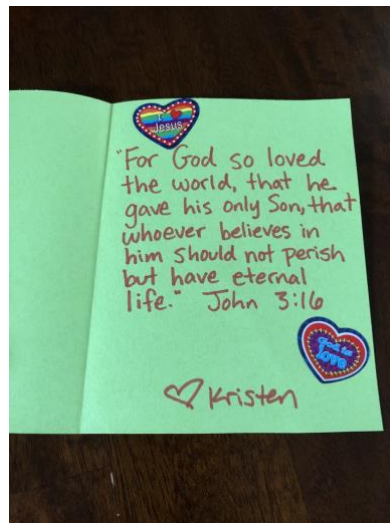 I ❤ Jesus
"For God so loved
the world, that he
gave his only Son, that
whoever believes in
him should not perish
but have eternal
life." John 3:16
God is
love
♡ Kristen